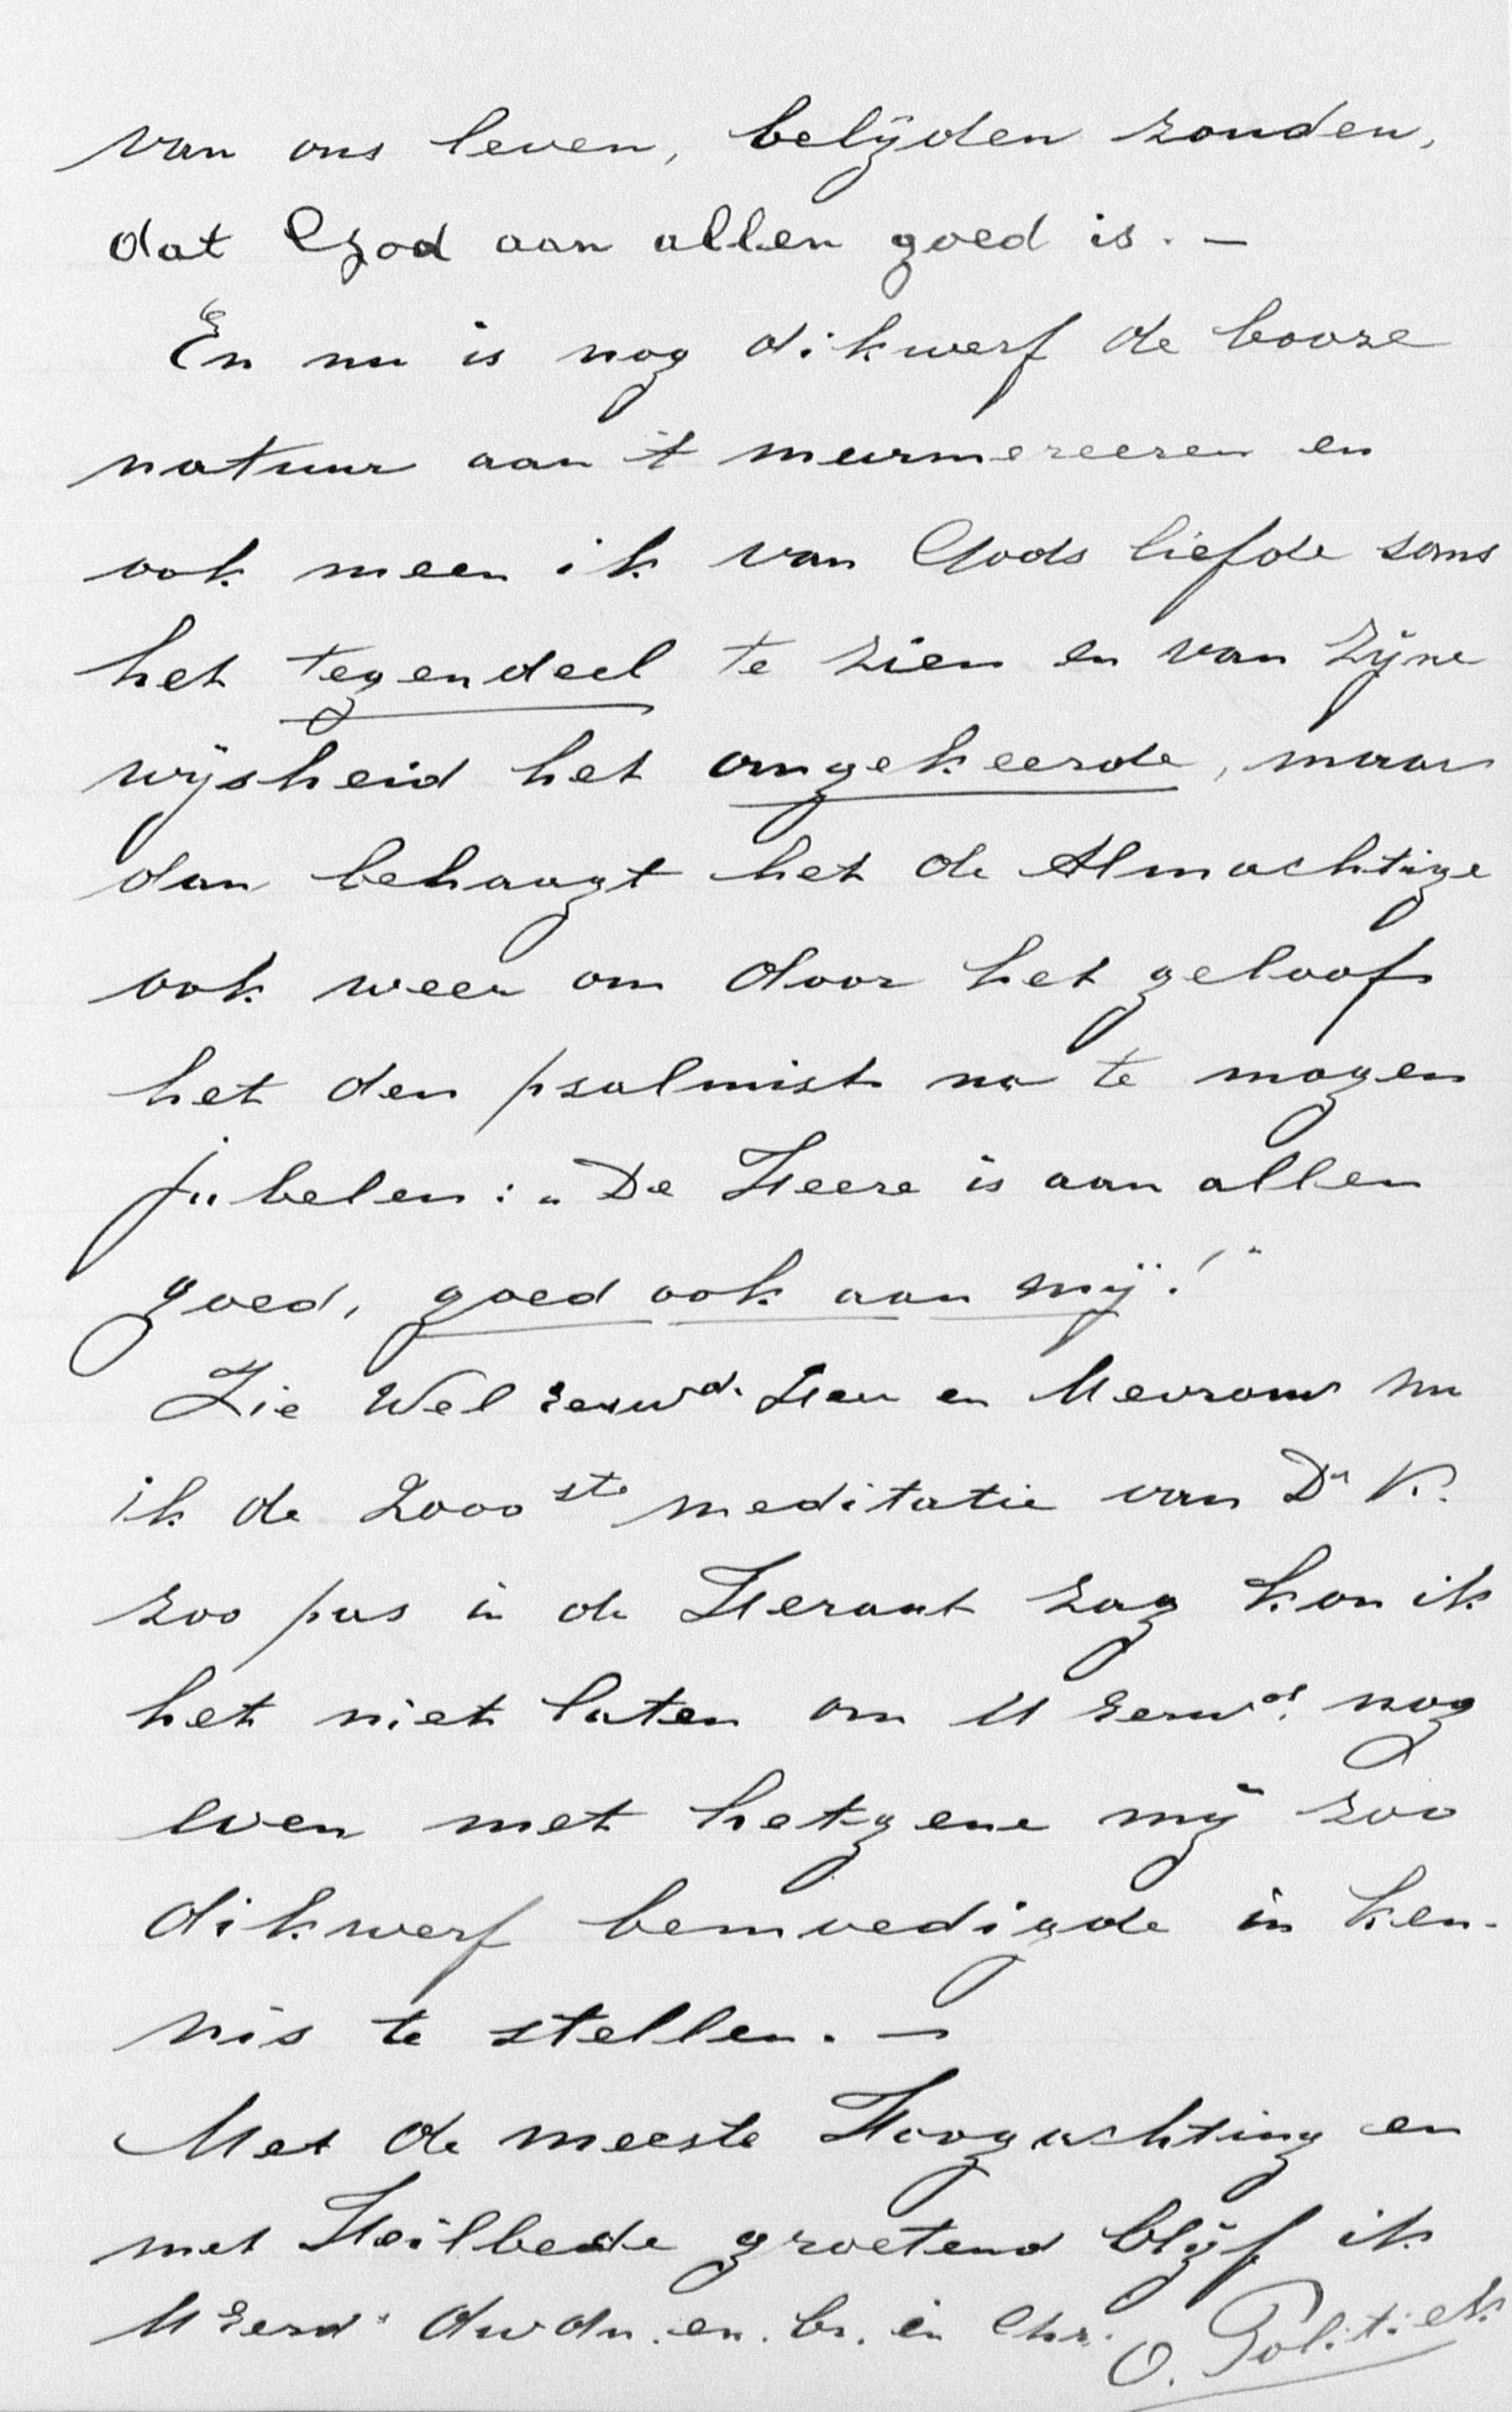 van ons leven, belijden zouden,
dat God aan allen goed is. —
En nu is nog dikwerf de booze
natuur aan 't murmereeren en
ook meen ik van Gods liefde soms
het tegendeel te zien en van Zijne
wijsheid het omgekeerde, maar
dan behaagt het de Almachtige
ook weer om door het geloof
het den psalmist na te mogen
jubelen: „De Heere is aan allen
goed, goed ook aan mij!"
Zie Wel Eerwd. Heer en Mevrouw nu
ik de 2000ste meditatie van Dr K.
zoo pas in de Heraut zag kon ik
het niet laten om U Eerwd. nog
even met hetgene mij zoo
dikwerf bemoedigde in ken-
nis te stellen. —
Met de meeste Hoogachting en
met Heilbede groetend blijf ik
U Eerwd dwdn. en. br. in Chr. O. Politiek